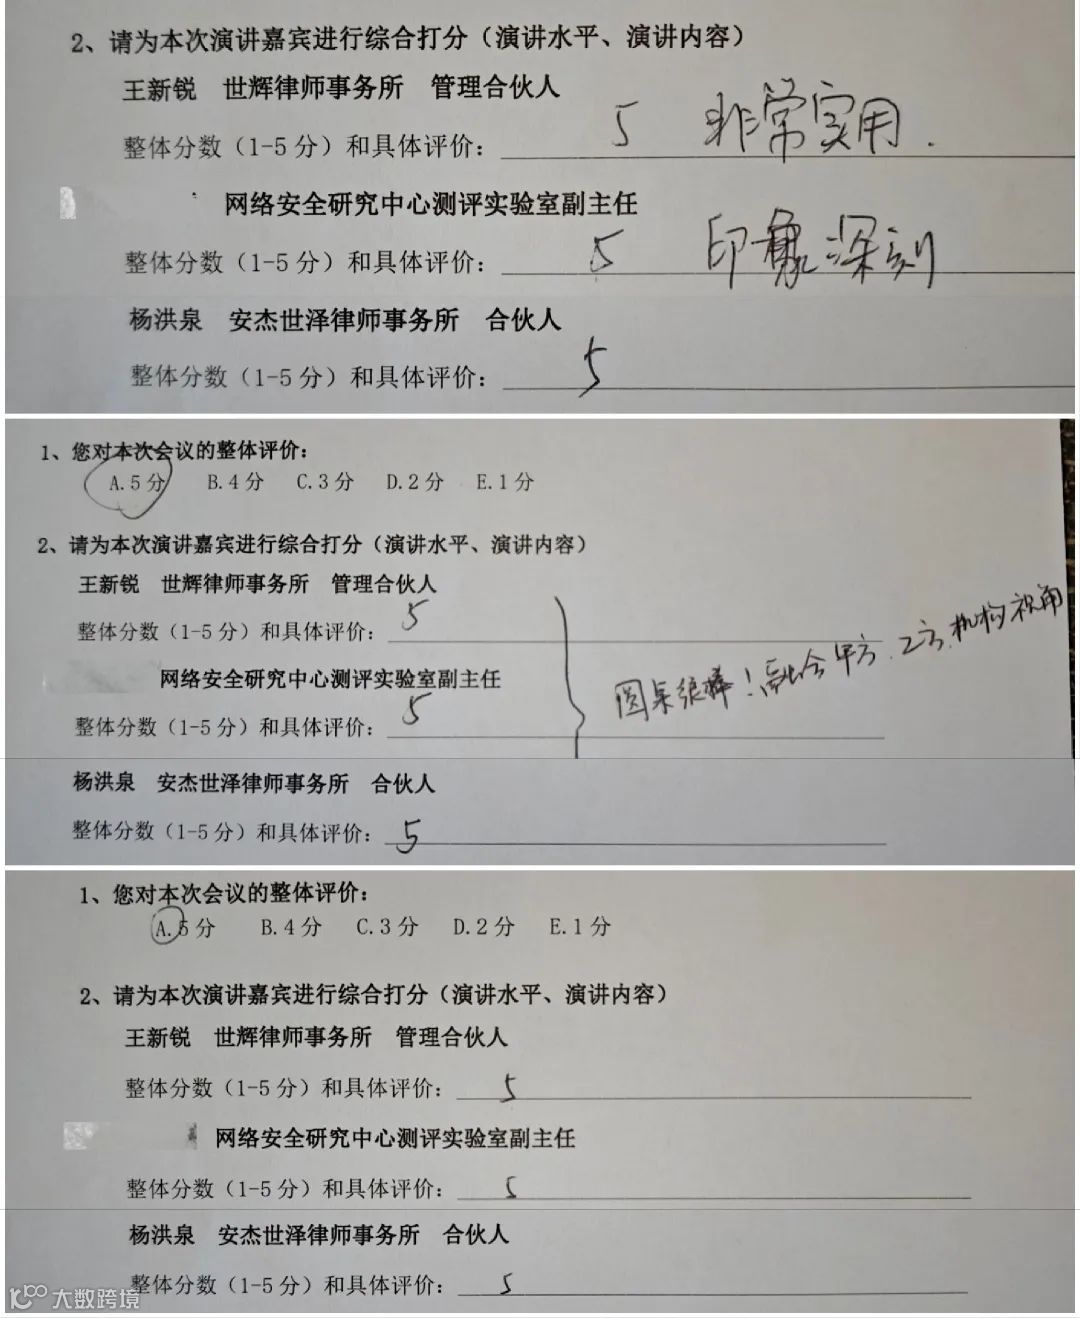 2、请为本次演讲嘉宾进行综合打分（演讲水平、演讲内容）
王新锐 世辉律师事务所 管理合伙人
整体分数（1-5 分）和具体评价： 5 非常实用.
网络安全研究中心测评实验室副主任
整体分数（1-5 分）和具体评价： 5 印象深刻
杨洪泉 安杰世泽律师事务所 合伙人
整体分数（1-5 分）和具体评价： 5
1、您对本次会议的整体评价：
A.5 分 B.4 分 C.3 分 D.2 分 E.1 分
2、请为本次演讲嘉宾进行综合打分（演讲水平、演讲内容）
王新锐 世辉律师事务所 管理合伙人
整体分数（1-5 分）和具体评价： 5
圆桌很棒！融合甲方、乙方、机构视角
网络安全研究中心测评实验室副主任
整体分数（1-5 分）和具体评价： 5
杨洪泉 安杰世泽律师事务所 合伙人
整体分数（1-5 分）和具体评价： 5
1、您对本次会议的整体评价：
A.5 分 B.4 分 C.3 分 D.2 分 E.1 分
2、请为本次演讲嘉宾进行综合打分（演讲水平、演讲内容）
王新锐 世辉律师事务所 管理合伙人
整体分数（1-5 分）和具体评价： 5
网络安全研究中心测评实验室副主任
整体分数（1-5 分）和具体评价： 5
杨洪泉 安杰世泽律师事务所 合伙人
整体分数（1-5 分）和具体评价： 5
大数跨境